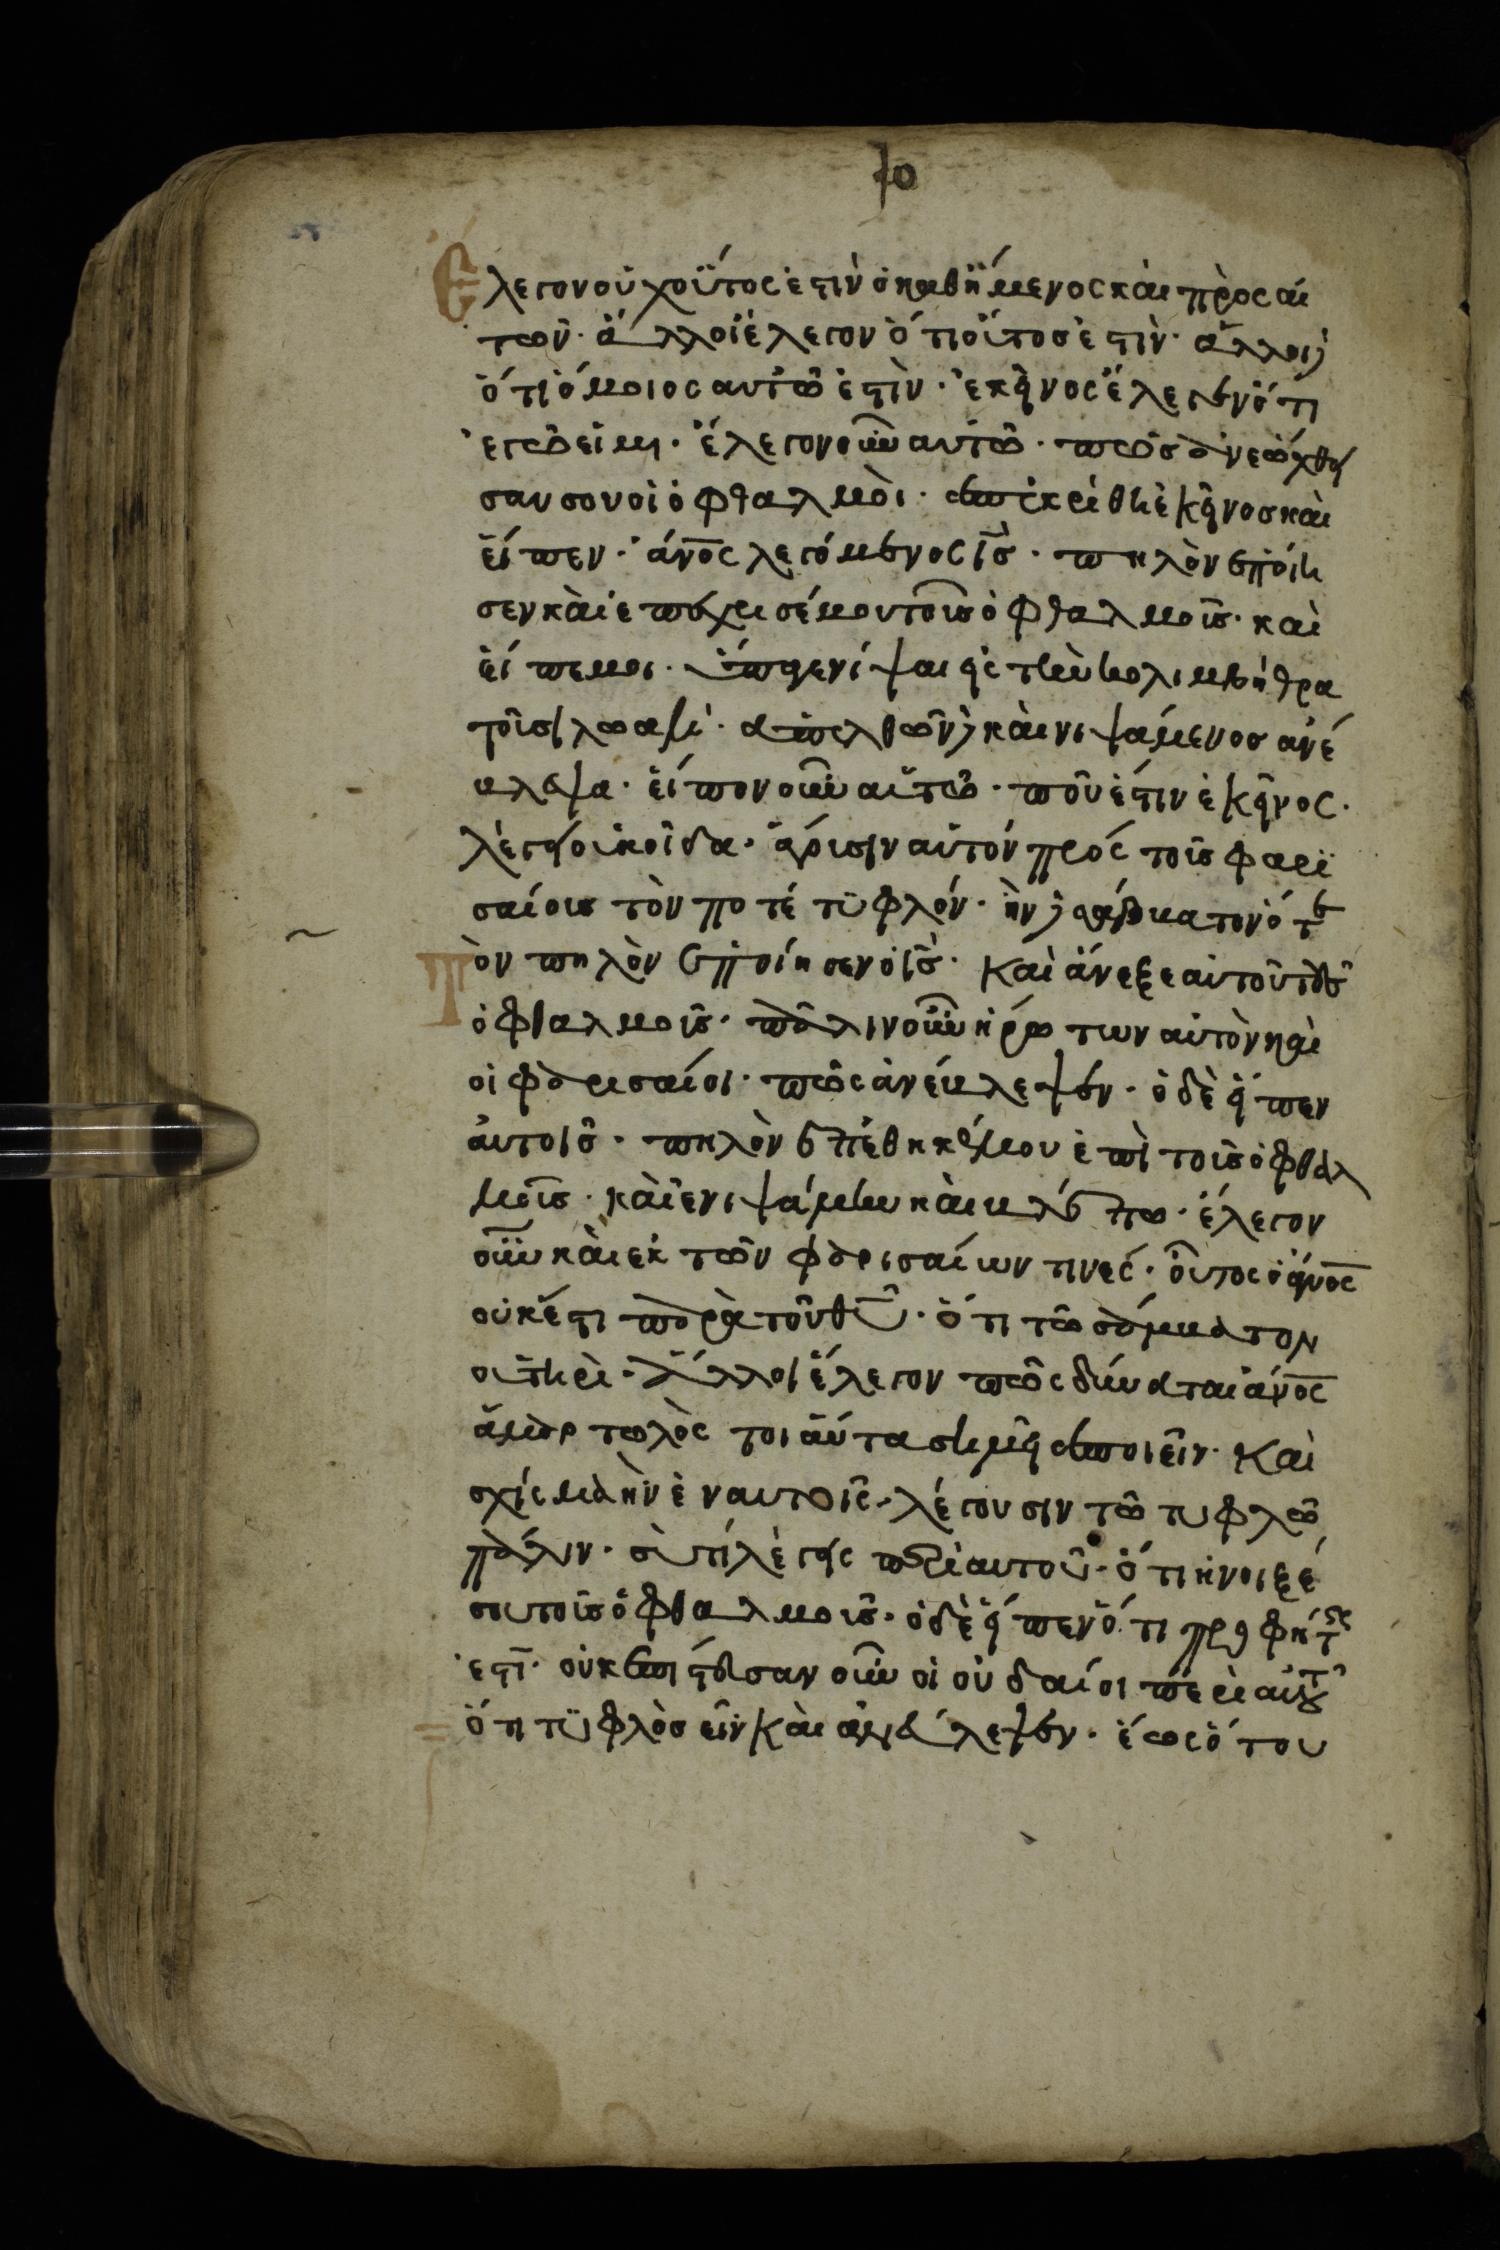 λο
Ελεγον οὐχ οὗτος ἐστὶν ὁ καθήμενος καὶ προσαι
τῶν· ἄλλοι ἔλεγον ὅτι οὗτοσ ἐστὶν· ἄλλοι δὲ
ὅτι ὅμοιος αυτῶ ἐστὶν· ἐκεῖνος ἔλεγεν ὅτι
ἐγῶ εἶμι· ἔλεγον οὖν αυτῶ· πῶσ ἀνεώχθη
σαν σου οἱ ὀφθαλμοὶ· ἀπεκρίθη ἐκεῖνοσ καὶ
εἶπεν· ἄνο̅ς λεγόμενος ι̅σ̅· πηλὸν ἐποίη
σεν καὶ ἐπέχρισέ μου τοῖσ ὀφθαλμοῖσ· καὶ
εἶπε μοι· ὕπαγε νίψαι εἰς τὴν κολιμβήθρα
τοῖ σιλωαμ· ἀπελθῶν δὲ καὶ νιψάμενοσ ἀνέ
βλεψα· εἶπον οὖν αὐτῶ· ποῦ ἐστιν ἐκεῖνος·
λέγει οὐκ οἶδα· ἄγουσιν αὐτόν πρός τοῖσ φαρι
σαίοισ τὸν ποτέ τυφλόν· ἦν δὲ σάββατον ὅτε
Τὸν πηλὸν ἐποίησεν ὁ ι̅σ̅· Καὶ ἄνεξε αὐτοῦ τοὺσ
ὀφθαλμοῖσ· πάλιν οὖν ἠρώτων αὐτὸν καὶ
οἱ φαρισαίοι· πῶς ἀνέβλεψεν· ὁ δὲ εἶπεν
ἀυτοῖσ· πηλὸν ἐπέθηκέ μου ἐπὶ τοῖσ ὀφθαλ
μοῖσ· καὶ ἐνιψάμην καὶ βλέπω· ἔλεγον
οὖν καὶ ἐκ τῶν φαρισαίων τινές· οὗτος ὁ ἄνο̅ς
οὐκ ἔστι παρὰ τοῦ θυ̅· ὅτι τῶ σάμματον
οὐ τηρὶ· Ἄλλοι ἔλεγον πῶς δύναται ἄνο̅ς
ἁμαρτωλὸς τοιαῦτα σημεῖα ποιεῖν· Καὶ
σχίσμα ἦν ἐν αυτοῖς· λέγουσιν τῶ τυφλῶ
πάλιν· σὺ τί λέγεις περὶ αυτοῦ· ὅτι ἠνοιξέ
σου τοῖσ ὀφθαλμοῖσ· ὁ δὲ εἶπεν ὅτι προφήτης
ἐστὶ· οὐκ ἐπίστευσαν οὖν οἱ οὐδαίοι περὶ αὐτοῦ
ὅτι τυφλὸσ εῖν Καὶ ἀνέβλεψεν· ἕως ὅτου